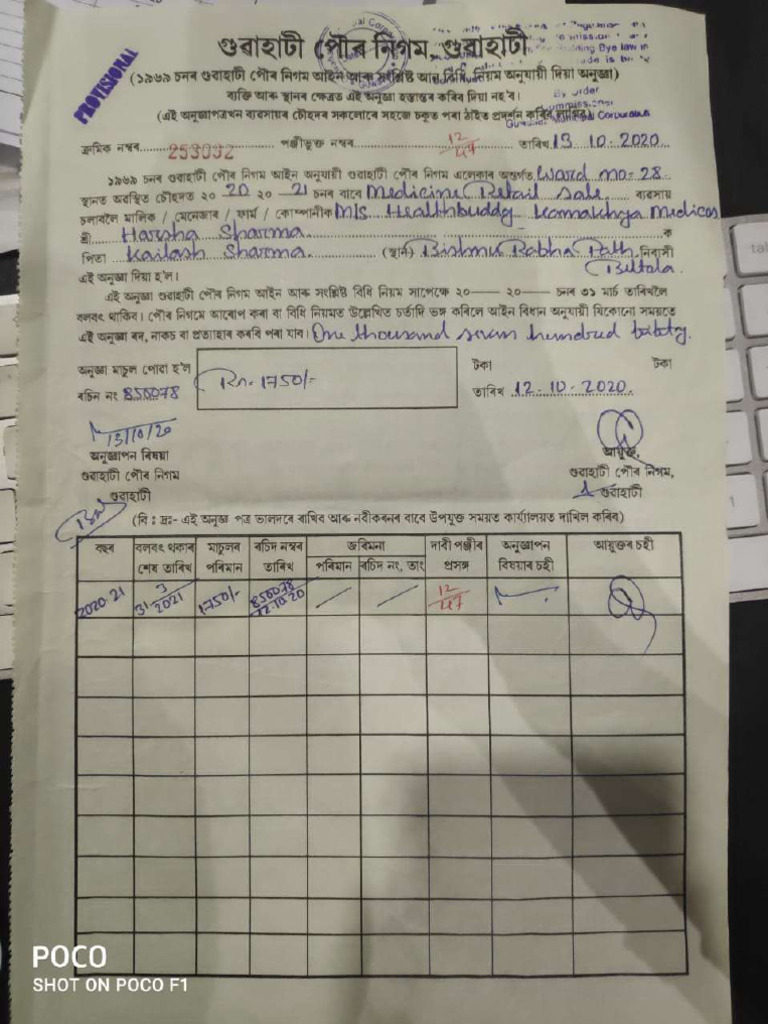 PROVISIONAL
গুৱাহাটী পৌৰ নিগম, গুৱাহাটী
(১৯৬৯ চনৰ গুৱাহাটী পৌৰ নিগম আইন আৰু সংশ্লিষ্ট আন বিধি, নিয়ম অনুযায়ী দিয়া অনুজ্ঞা)
ব্যক্তি আৰু স্থানৰ ক্ষেত্ৰত এই অনুজ্ঞা হস্তান্তৰ কৰিব দিয়া নহ'ব।
By order
(এই অনুজ্ঞাপত্ৰখন ব্যৱসায়ৰ চৌহদৰ সকলোৰে সহজে চকুত পৰা ঠাইত প্ৰদৰ্শন কৰিব লাগিব)
ক্ৰমিক নম্বৰ 253092 পঞ্জীভূক্ত নম্বৰ 12/47 তাৰিখ 13.10.2020
১৯৬৯ চনৰ গুৱাহাটী পৌৰ নিগম আইন অনুযায়ী গুৱাহাটী পৌৰ নিগম এলেকাৰ অন্তৰ্গত Ward no-28
স্থানত অৱস্থিত চৌহদত ২০20 ২০-21 চনৰ বাবে Medicine Retail sale ব্যৱসায়
চলাবলৈ মালিক / মেনেজাৰ / ফাৰ্ম / কোম্পানীক M/s Healthbuddy Kamakhya Medicos
শ্ৰী Harsha Sharma ক
পিতা Kailash Sharma (স্থান) Bishnu Rabha Path নিবাসী
Beltola.
এই অনুজ্ঞা দিয়া হ'ল।
এই অনুজ্ঞা গুৱাহাটী পৌৰ নিগম আইন আৰু সংশ্লিষ্ট বিধি নিয়ম সাপেক্ষে ২০—— ২০—— চনৰ ৩১ মাৰ্চ তাৰিখলৈ
বলবৎ থাকিব। পৌৰ নিগমে আৰোপ কৰা বা বিধি নিয়মত উল্লেখিত চৰ্তাদি ভঙ্গ কৰিলে আইন বিধান অনুযায়ী যিকোনো সময়তে
এই অনুজ্ঞা ৰদ, নাকচ বা প্ৰত্যাহাৰ কৰিব পৰা যাব। One thousand seven hundred
অনুজ্ঞা মাচুল পোৱা হ'ল Rs. 1750/- টকা টকা
ৰচিদ নং 850078 তাৰিখ 12.10.2020
13/10/20
অনুজ্ঞাপন বিষয়া আয়ুক্ত,
গুৱাহাটী পৌৰ নিগম গুৱাহাটী পৌৰ নিগম,
গুৱাহাটী গুৱাহাটী
(বি : দ্ৰঃ- এই অনুজ্ঞা পত্ৰ ভালদৰে ৰাখিব আৰু নবীকৰনৰ বাবে উপযুক্ত সময়ত কাৰ্য্যালয়ত দাখিল কৰিব)
বছৰ বলবৎ থকাৰ শেষ তাৰিখ মাচুলৰ পৰিমান ৰচিদ নম্বৰ তাৰিখ জৰিমনা দাবী পঞ্জীৰ প্ৰসঙ্গ অনুজ্ঞাপন বিষয়াৰ চহী আয়ুক্তৰ চহী
পৰিমান ৰচিদ নং, তাং
2020-21 31-3/2021 1750/- 850078 12.10.20 12/47
POCO
SHOT ON POCO F1